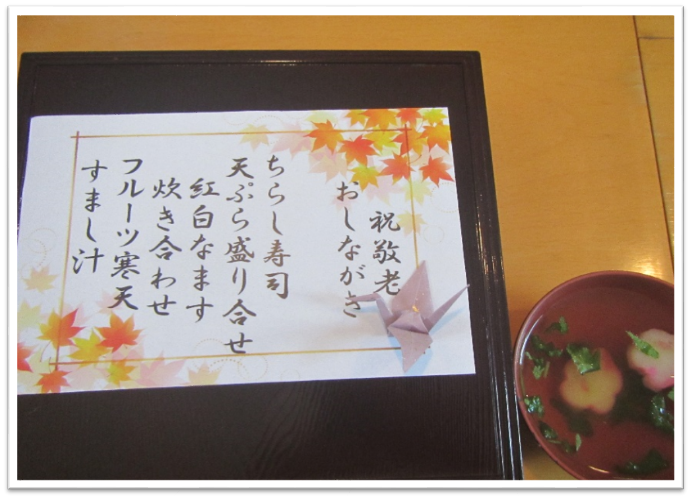 祝敬老
おしながき
ちらし寿司
天ぷら盛り合せ
紅白なます
炊き合わせ
フルーツ寒天
すまし汁